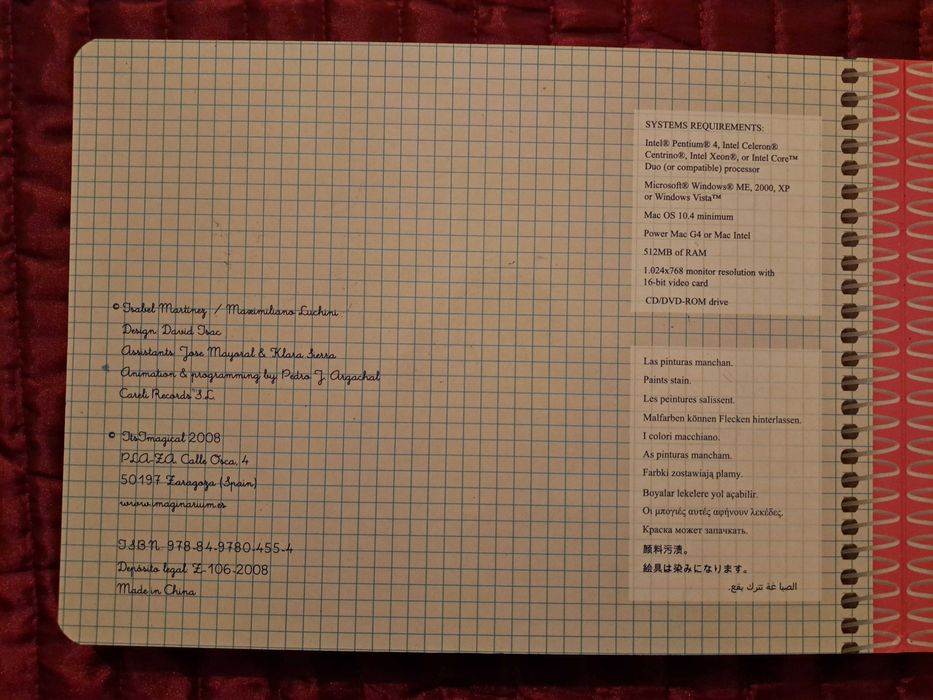 © Isabel Martinez / Maximiliano Luchini
Design: David Isac
Assistants: Jose Mayoral & Klara Sierra
Animation & programming by Pedro J. Argachal
Careli Records S.L.
© ItsImagical 2008
PLA-ZA. Calle Osca, 4
50197 Zaragoza (Spain)
www.imaginarium.es
ISBN: 978-84-9780-455-4
Depósito legal: Z-106-2008
Made in China
SYSTEMS REQUIREMENTS:
Intel® Pentium® 4, Intel Celeron®
Centrino®, Intel Xeon®, or Intel Core™
Duo (or compatible) processor
Microsoft® Windows® ME, 2000, XP
or Windows Vista™
Mac OS 10.4 minimum
Power Mac G4 or Mac Intel
512MB of RAM
1.024x768 monitor resolution with
16-bit video card
CD/DVD-ROM drive
Las pinturas manchan.
Paints stain.
Les peintures salissent.
Malfarben können Flecken hinterlassen.
I colori macchiano.
As pinturas mancham.
Farbki zostawiają plamy.
Boyalar lekelere yol açabilir.
Οι μπογιές αυτές αφήνουν λεκέδες.
Краска может запачкать.
顔料污渍。
絵具は染みになります。
الصباغة تترك بقع.